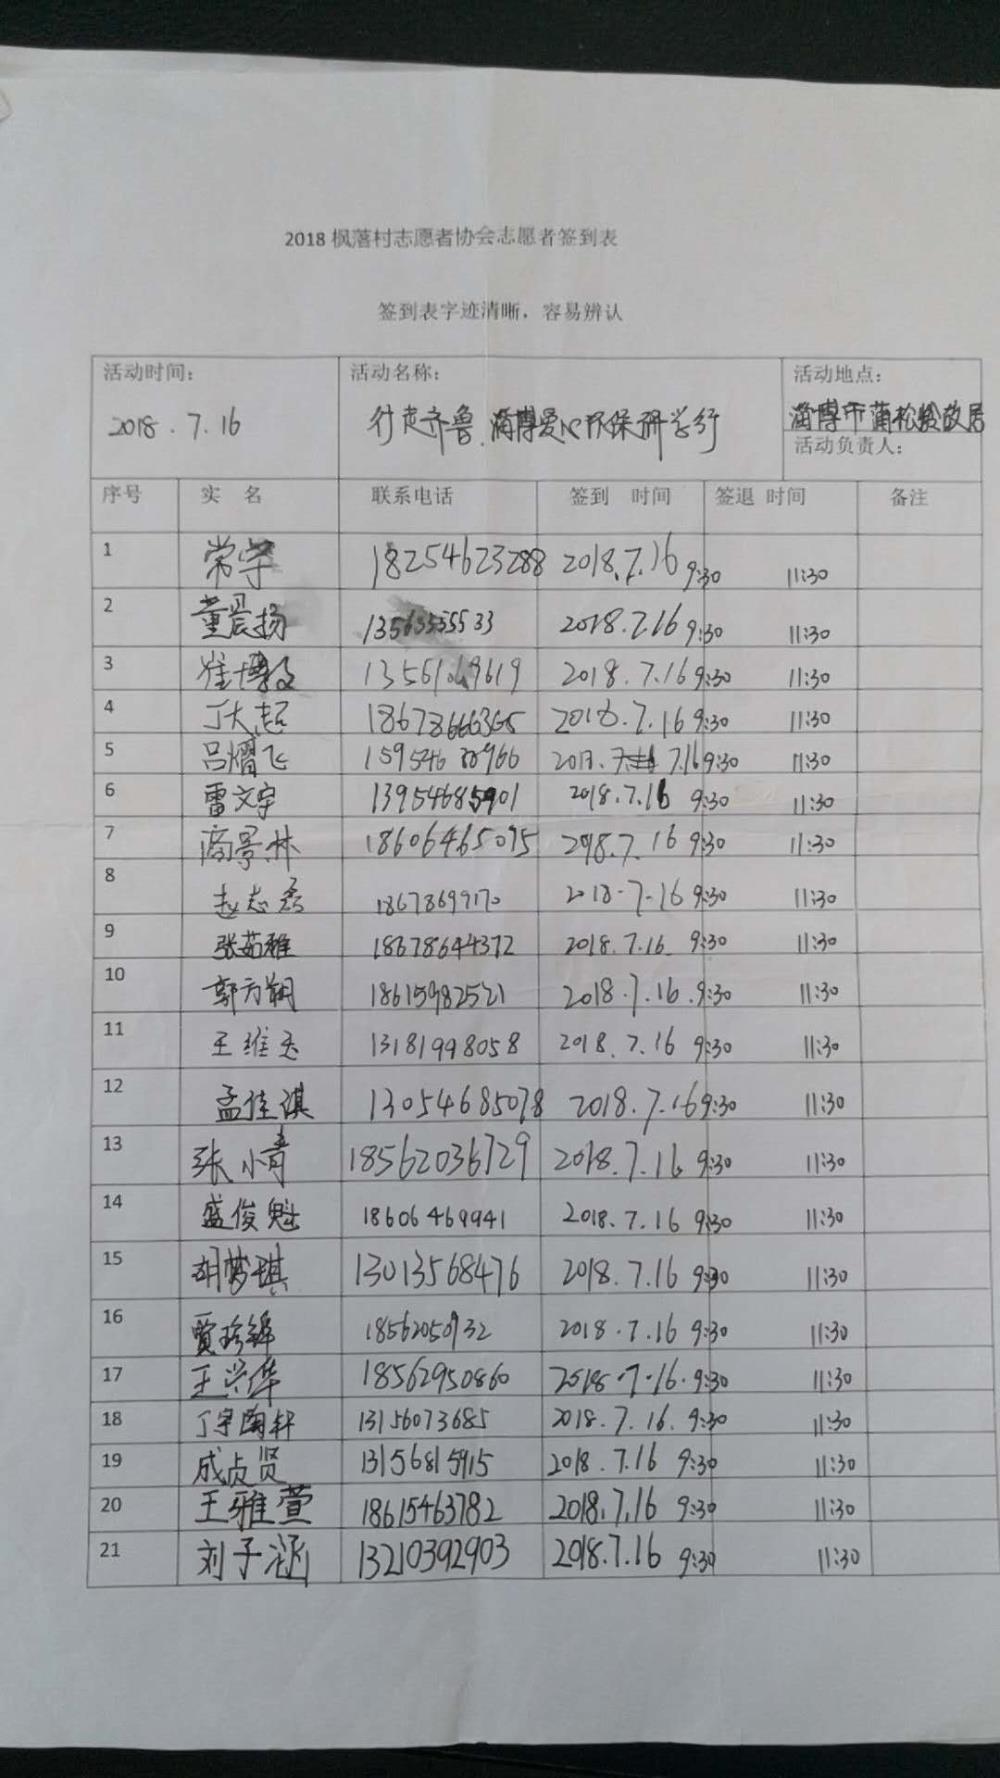 2018 枫落村志愿者协会志愿者签到表
签到表字迹清晰，容易辨认
活动时间： 活动名称： 活动地点：
2018.7.16 行走齐鲁.淄博爱心环保研学行 淄博市蒲松龄故居
活动负责人：
序号 实 名 联系电话 签到 时间 签退 时间 备注
1 常宇 18254623288 2018.7.16 9:30 11:30
2 董晨扬 2018.7.16 9:30 11:30
3 崔博文 2018.7.16 9:30 11:30
4 丁大超 18678666365 2018.7.16 9:30 11:30
5 吕熠飞 7.16 9:30 11:30
6 雷文宇 13954685901 2018.7.16 9:30 11:30
7 商景林 18606465095 2018.7.16 9:30 11:30
8 赵志彦 18678699170 2018-7-16 9:30 11:30
9 张茹雅 18678644372 2018.7.16 9:30 11:30
10 郭方翔 18615982521 2018.7.16.9:30 11:30
11 王维 13181998058 2018.7.16 9:30 11:30
12 孟佳淇 13054685078 2018.7.16 9:30 11:30
13 张小青 18562036729 2018.7.16 9:30 11:30
14 盛俊魁 18606469941 2018.7.16 9:30 11:30
15 胡梦琪 13013568476 2018.7.16 9:30 11:30
16 贾珍 18562050932 2018.7.16 9:30 11:30
17 王兴华 18562950860 2018.7.16.9:30 11:30
18 丁宇轩 13156073685 2018.7.16. 9:30 11:30
19 成贞贤 13156815915 2018.7.16 9:30 11:30
20 王雅萱 18615463782 2018.7.16 9:30 11:30
21 刘子涵 13210392903 2018.7.16 9:30 11:30